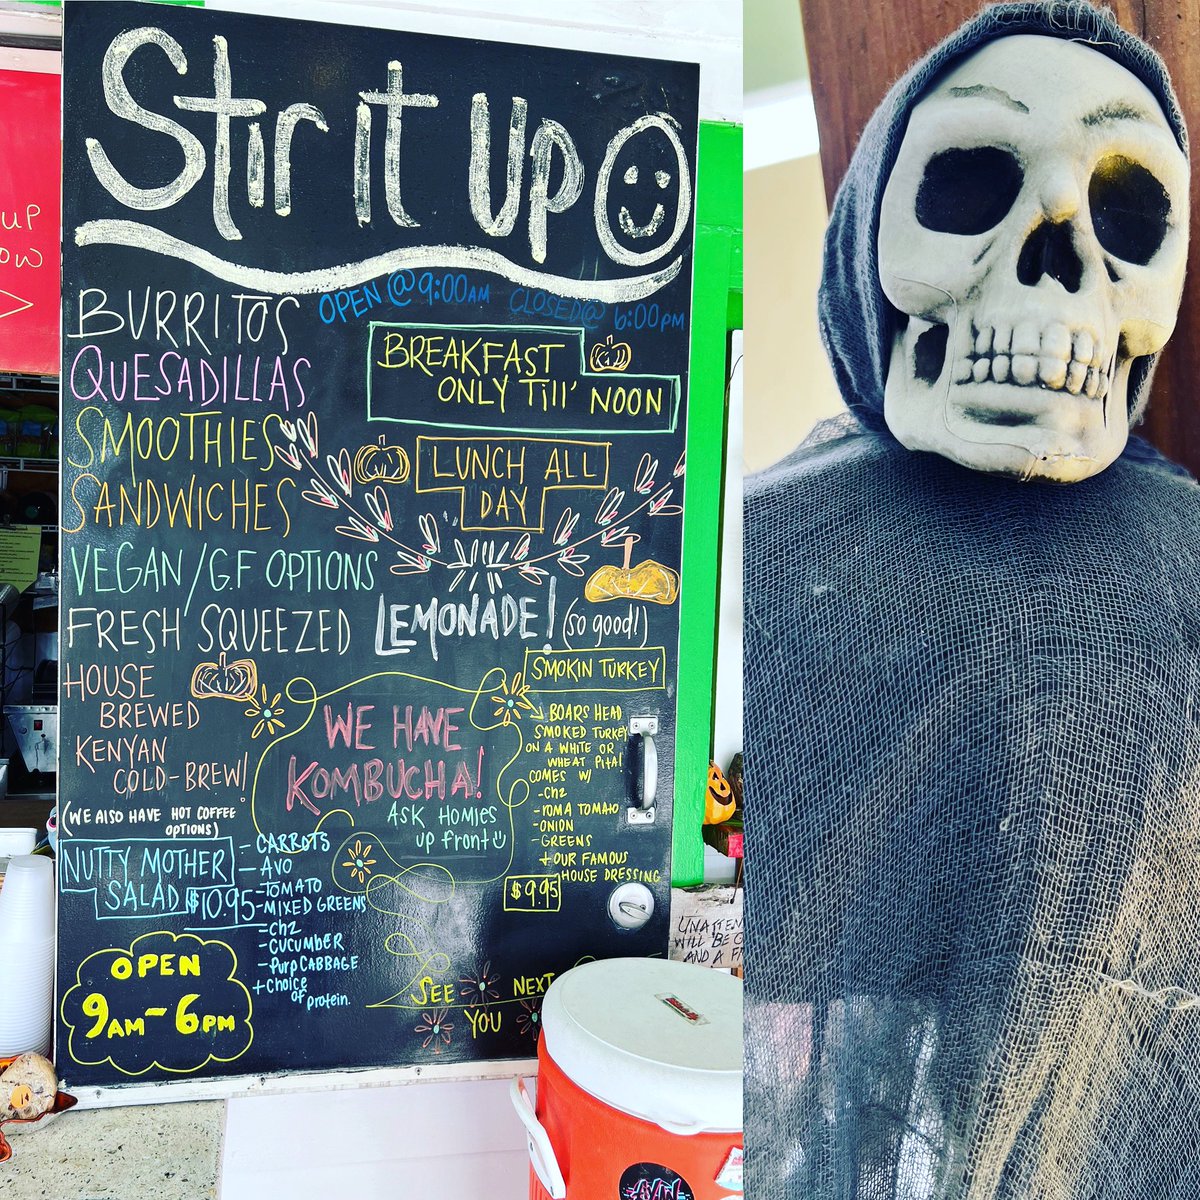 Stir it Up
OPEN @ 9:00AM CLOSED @ 6:00PM
BURRITOS
QUESADILLAS
SMOOTHIES
SANDWICHES
VEGAN/GF OPTIONS
FRESH SQUEEZED LEMONADE! (so good!)
BREAKFAST
ONLY Till' NOON
LUNCH ALL
DAY
HOUSE
BREWED
KENYAN
COLD-BREW!
(WE ALSO HAVE HOT COFFEE
OPTIONS)
WE HAVE
KOMBUCHA!
ASK HOMIES
UP FRONT
SMOKIN TURKEY
BOARS HEAD
SMOKED TURKEY
ON A WHITE OR
WHEAT PITA!
COMES W/
-CHZ
-ROMA TOMATO
-ONION
-GREENS
+ OUR FAMOUS
HOUSE DRESSING
$9.95
NUTTY MOTHER
SALAD $10.95
- CARROTS
- AVO
-TOMATO
-MIXED GREENS
-CHZ
-CUCUMBER
-PURP CABBAGE
+choice
of protein
OPEN
9AM-6PM
SEE
YOU
NEXT
UP
OW
UNATTEN
WILL BE G
AND A FR